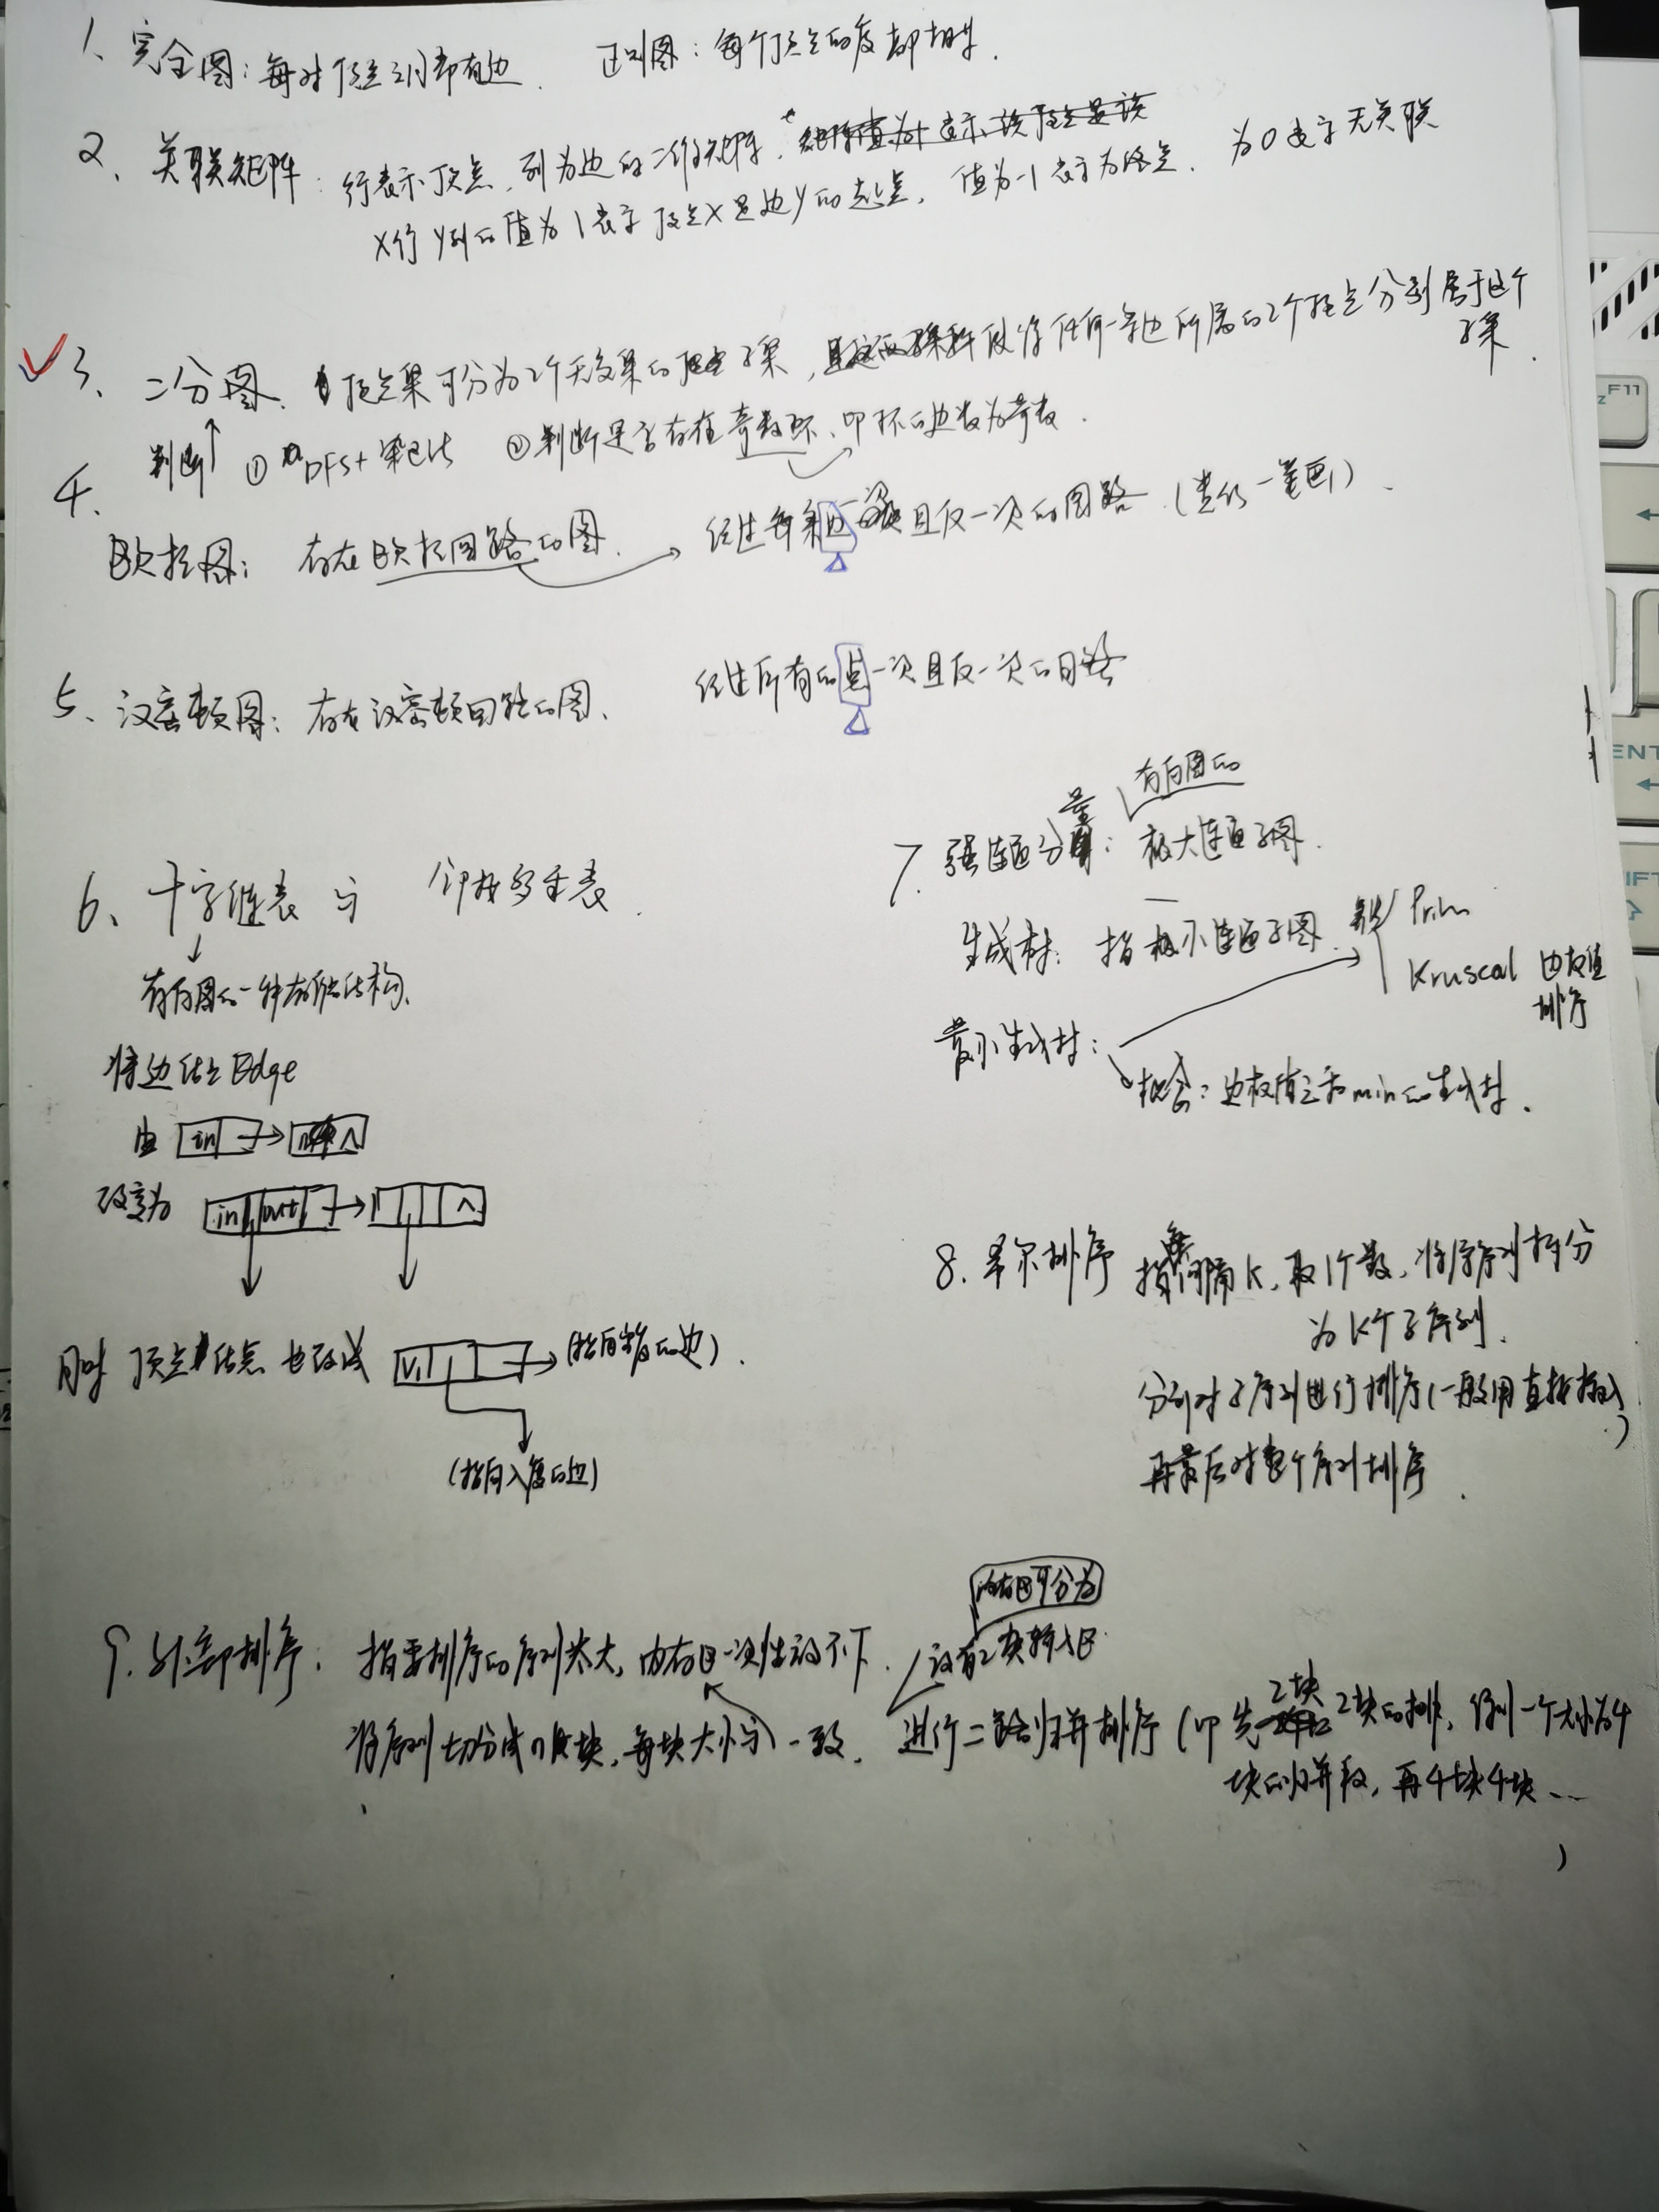 1、完全图：每对顶点之间都有边. 正则图：每个顶点的度都相等.
2、关联矩阵：行表示顶点，列为边的二维矩阵.
X行Y列的值为1表示顶点X是边Y的起点，值为-1表示为终点. 为0表示无关联
3、二分图. 顶点集可分为2个无交集的子集，且将任何一条边所属的2个顶点分到属于这个
子集.
判断 ① DFS+染色法 ②判断是否存在奇数环、即环的边数为奇数.
4、
欧拉图：存在欧拉回路的图. 经过每条边一次且仅一次的回路 (类似一笔画)、
5、汉密顿图：存在汉密顿回路的图、 经过所有的点一次且仅一次的回路
6、十字链表 与 邻接多重表.
有向图的一种存储结构、
将边结点Edge
由 in
改变为 in out
同时 顶点结点也改成 Vi (指向出度的边).
(指向入度的边)
有向图的
7. 强连通分量：极大连通子图.
生成树：指极小连通子图. 算法 Prim
Kruscal 边权值
排序
最小生成树：
概念：边权值之和min的生成树.
8. 希尔排序 指每间隔K，取1个数，将原序列拆分
为K个子序列.
分别对子序列进行排序(一般用直接插入)
再最后对整个序列排序.
内存可分为
9. 外部排序：指要排序的序列太大，内存一次性放不下. 设有2块输入区.
将序列切分成n块，每块大小与一致. 进行二路归并排序(即先2块2块的排，得到一个大小为4
块的归并段，再4块4块…
)
F11
ENT